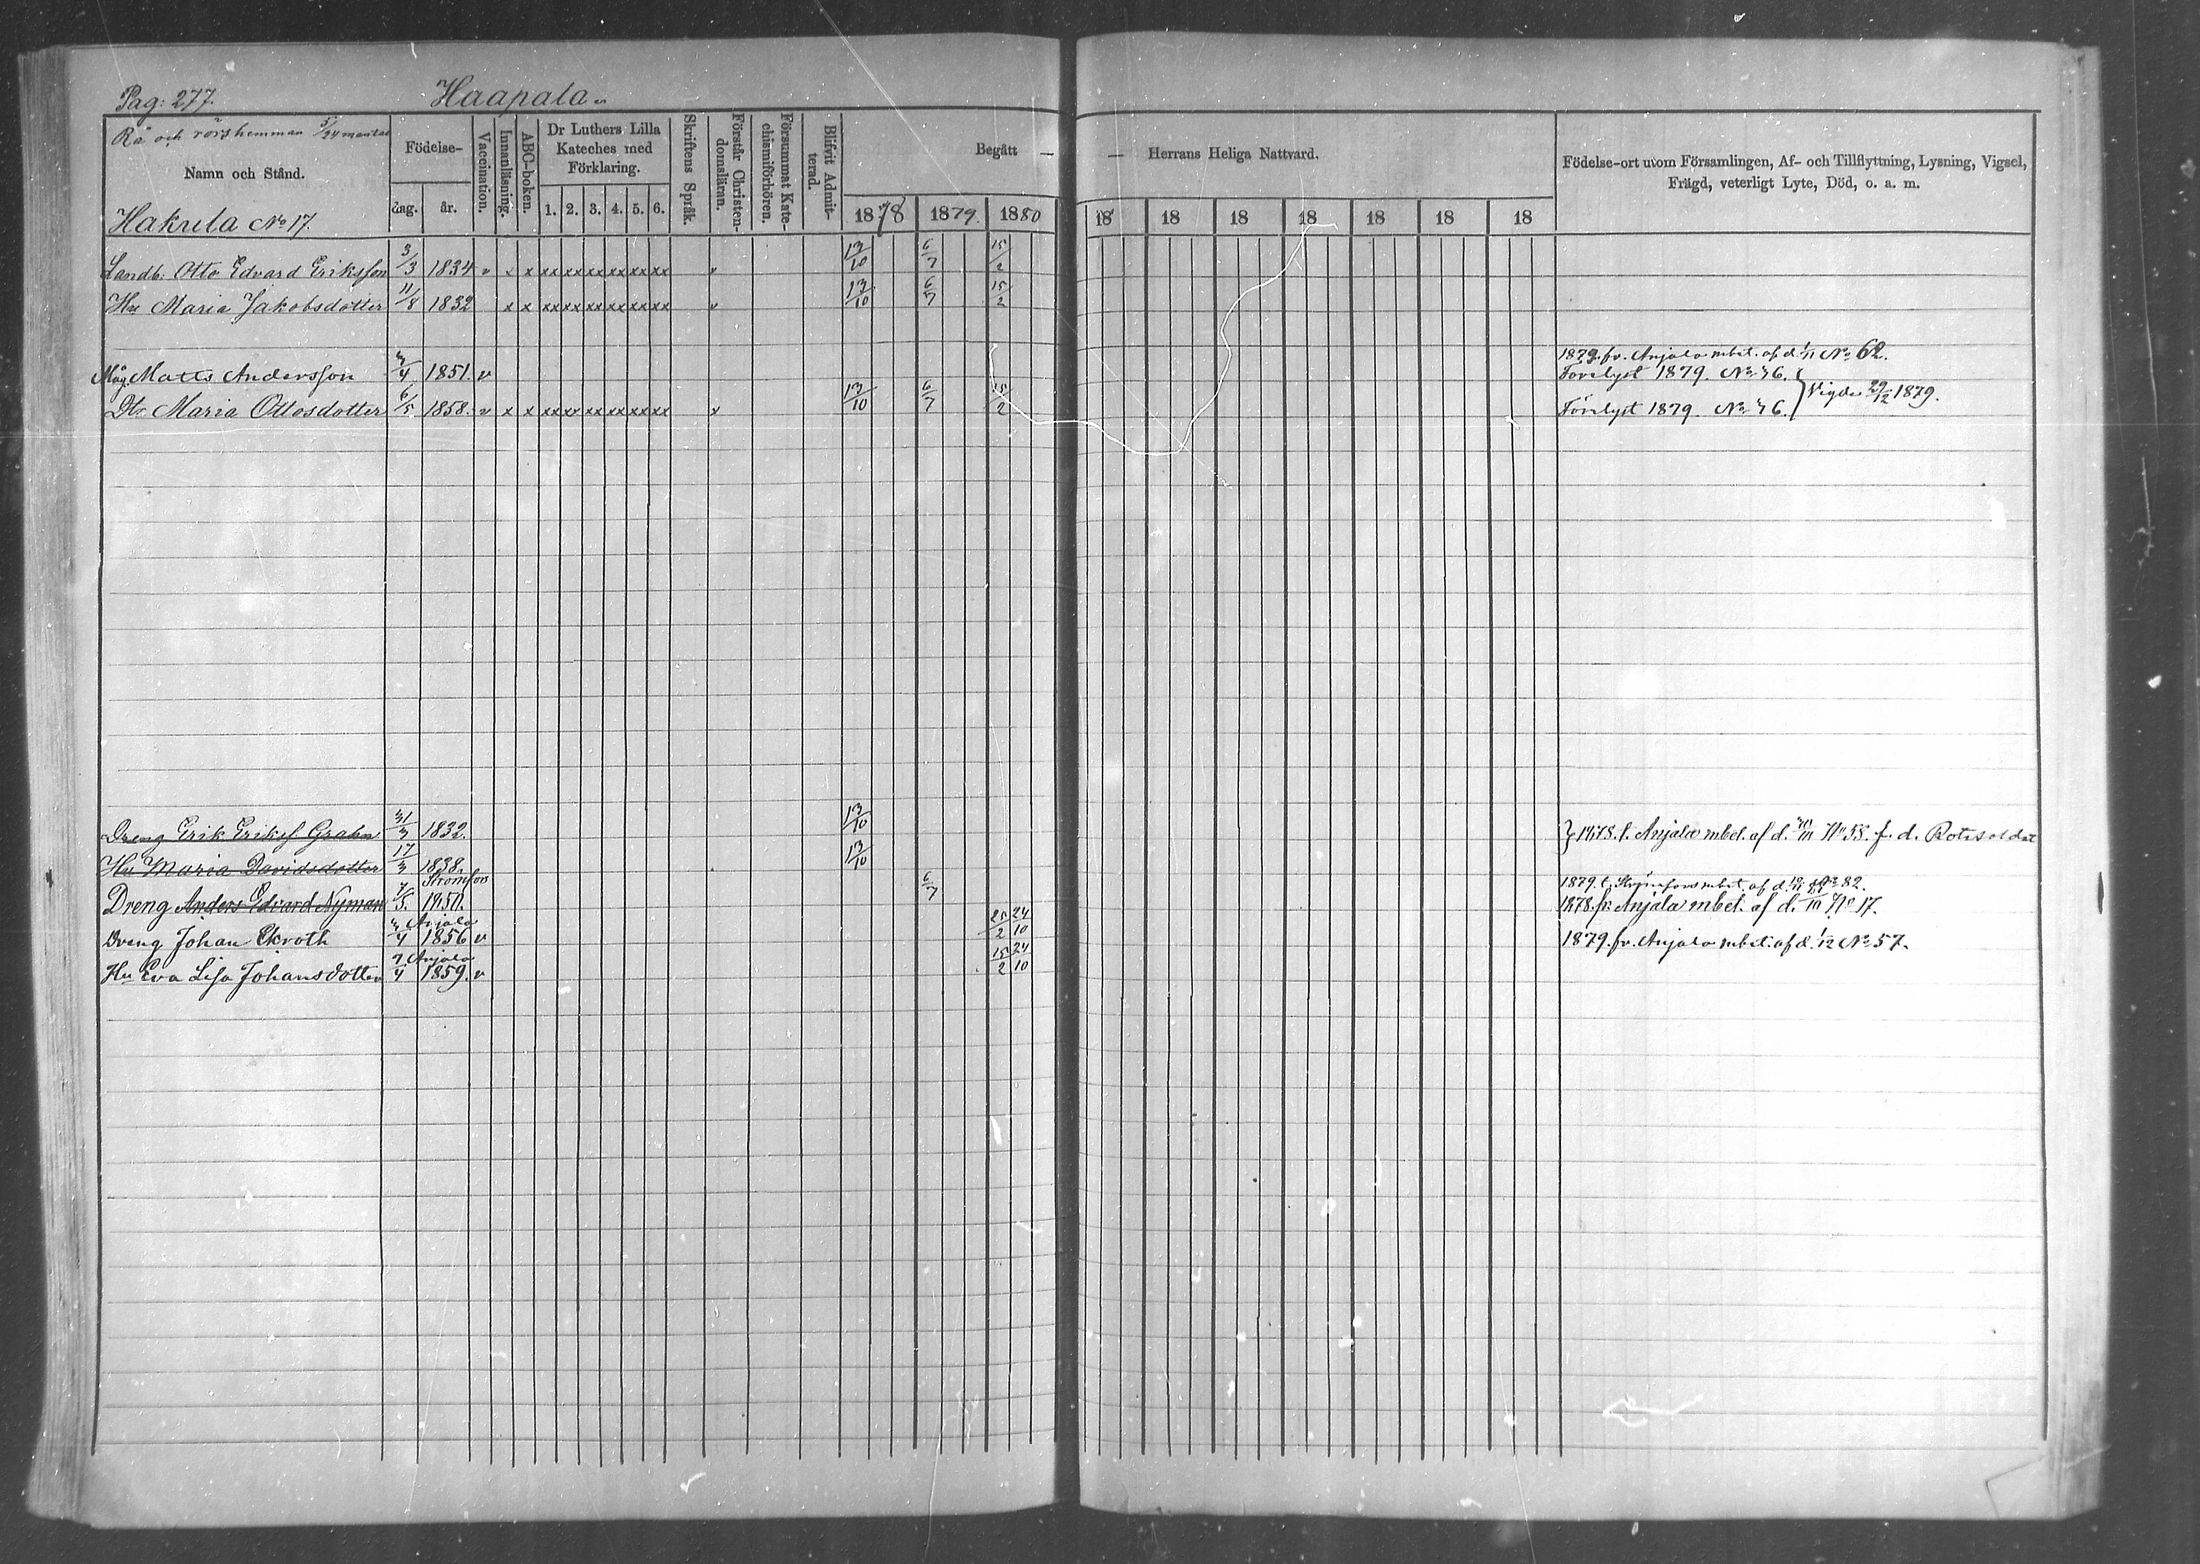 Pag: 277. Haapala
Rå och rörshemman 5/24 mantal
Namn och Stånd.
Hakula No 17.
Födelse-
dag. år.
Vaccination.
Innanläsning.
ABC-boken.
Dr Luthers Lilla
Kateches med
Förklaring.
1. 2. 3. 4. 5. 6.
Skriftens Språk.
Förstår Christen-
domsläran.
Försummat Kate-
chismiförhören.
Blifvit Admit-
terad.
Begått — — Herrans Heliga Nattvard.
1878 1879. 1880 18 18 18 18 18 18 18
Födelse-ort utom Församlingen, Af- och Tillflyttning, Lysning, Vigsel,
Frägd, veterligt Lyte, Död, o. a. m.
Landb. Otto Edvard Eriksson 3/3 1834 v x x xx xx xx xx xx xx v 13/10 6/7 15/2
Hu Maria Jakobsdotter 11/8 1832 x x xx xx xx xx xx xx v 13/10 6/7 15/2
1879. fr. Anjala mbet. af d. 1/11 No 62.
Måg. Matts Andersson 1851. v Förelyst 1879. No 46.
Dr. Maria Ottosdotter 6/5 1858. v x x xx xx xx xx xx xx v 13/10 6/7 15/2 Förelyst 1879. No 46. } Vigde 29/12 1879.
Dreng Erik Erikss. Grahn 31/3 1832. 13/10 } 1878. t. Anjala mbet. af d. No 58. f. d. Rotesoldat
Hu Maria Davidsdotter 17/3 1838. 13/10
Strömfors 1879. t. Strömfors mbet. af d. No 82.
Dreng Anders Edvard Nyman 7/5 1850. 6/7 1878. fr. Anjala mbet. af d. No 17.
Anjala
Dreng Johan Ekroth 1856 v 25/2 24/10 1879. fr. Anjala mbet. af d. 1/12 No 57.
Anjala
Hu Eva Lisa Johansdotter 7/4 1859. v 15/2 24/10